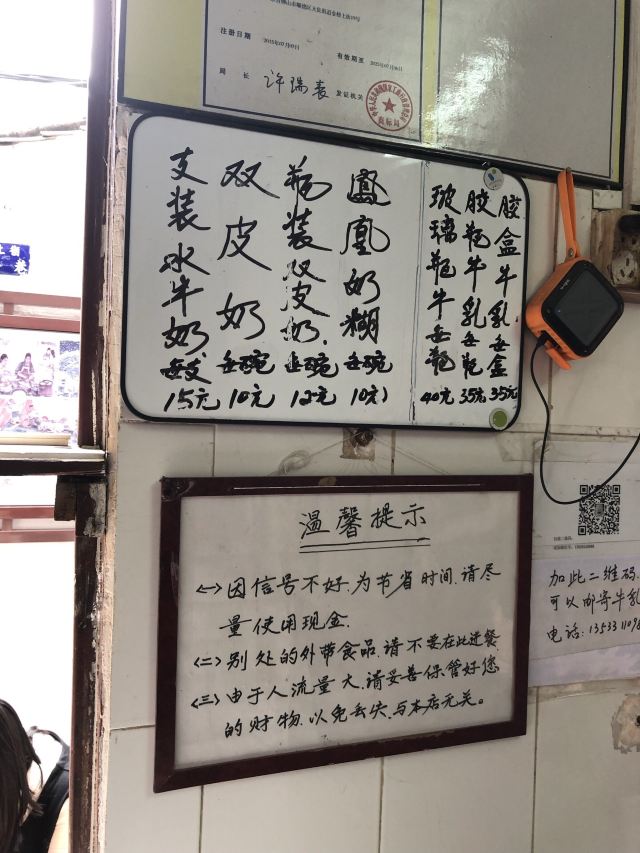 注册日期 2015年07月07日
有效期至 2025年07月06日
局长 许瑞表 发证机关
支装水牛奶每支15元
双皮奶每碗10元
瓶装双皮奶每碗12元
鳳凰奶糊每碗10元
玻璃瓶牛每瓶40元
胶瓶牛乳每瓶35元
胶盒牛乳每盒35元
温馨提示
<一>因信号不好.为节省时间.请尽
量使用现金.
<二>别处的外带食品.请不要在此进餐.
<三>由于人流量大.请妥善保管好您
的财物.以免丢失.与本店无关。
加此二维码
可以邮寄牛乳
电话:135331109